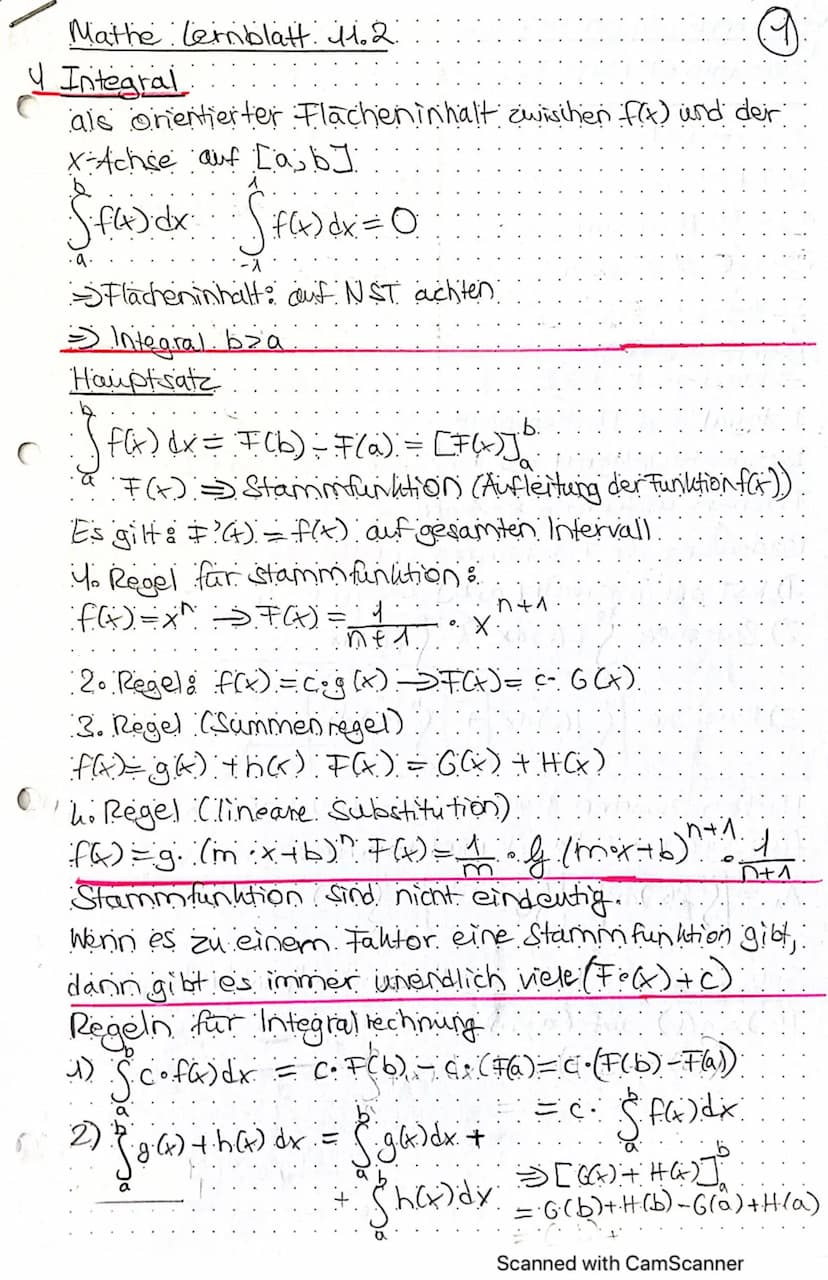 Mathe Lernblatt 11.2
1
1) Integral
als orientierter Flächeninhalt zwischen f(x) und der
x-Achse auf [a,b]
∫_a^b f(x) dx   ∫_{-1}^1 f(x) dx = 0
⇒ Flächeninhalt: auf NST achten
⇒ Integral b>a
Hauptsatz
∫_a^b f(x) dx = F(b) - F(a) = [F(x)]_a^b
F(x) ⇒ Stammfunktion (Aufleitung der Funktion f(x))
Es gilt: F'(x) = f(x) auf gesamten Intervall
1. Regel für Stammfunktion:
f(x) = x^n → F(x) = 1/(n+1) · x^{n+1}
2. Regel: f(x) = c·g(x) → F(x) = c· G(x)
3. Regel (Summenregel)
f(x) = g(x) + h(x) F(x) = G(x) + H(x)
4. Regel (lineare Substitution)
f(x) = g · (m·x+b)^n F(x) = 1/m · g (m·x+b)^{n+1} · 1/(n+1)
Stammfunktion sind nicht eindeutig.
Wenn es zu einem Faktor eine Stammfunktion gibt,
dann gibt es immer unendlich viele (F·(x)+c)
Regeln für Integralrechnung
1) ∫_a^b c·f(x) dx = c·F(b) - c·(F(a) = c·(F(b) - F(a))
= c· ∫_a^b f(x) dx
2) ∫_a^b g(x) + h(x) dx = ∫_a^b g(x) dx +
+ ∫_a^b h(x) dx ⇒ [G(x) + H(x)]_a^b
= G(b) + H(b) - G(a) + H(a)
Scanned with CamScanner